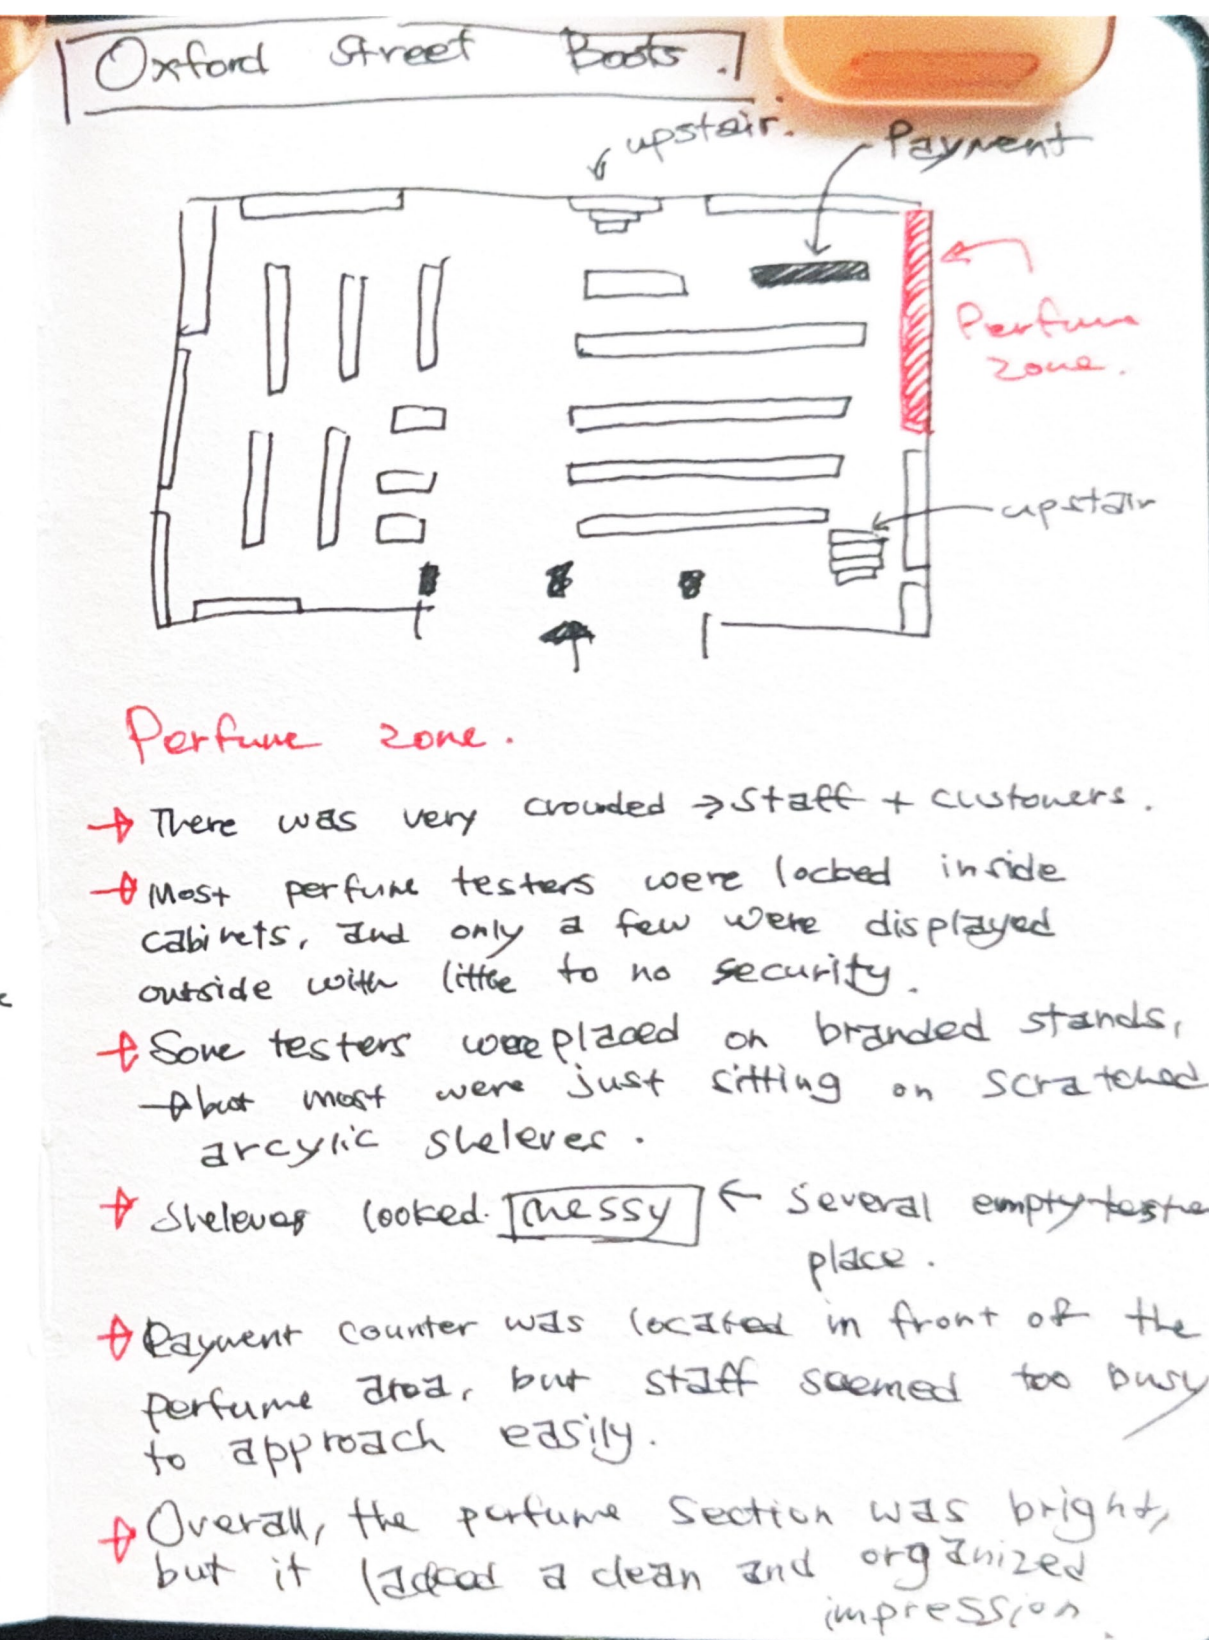 Oxford Street Boots.
upstair.
Payment
Perfume
zone.
upstair
Perfume zone.
There was very crouded → staff + customers.
Most perfume testers were locked inside
cabinets, and only a few were displayed
outside with little to no security.
Some testers were placed on branded stands,
but most were just sitting on scratched
arcylic sheleves.
Sheleves looked messy ← several empty teste
place.
Payment counter was located in front of the
perfume area, but staff seemed too busy
to approach easily.
Overall, the perfume section was bright,
but it lacked a clean and organized
impression